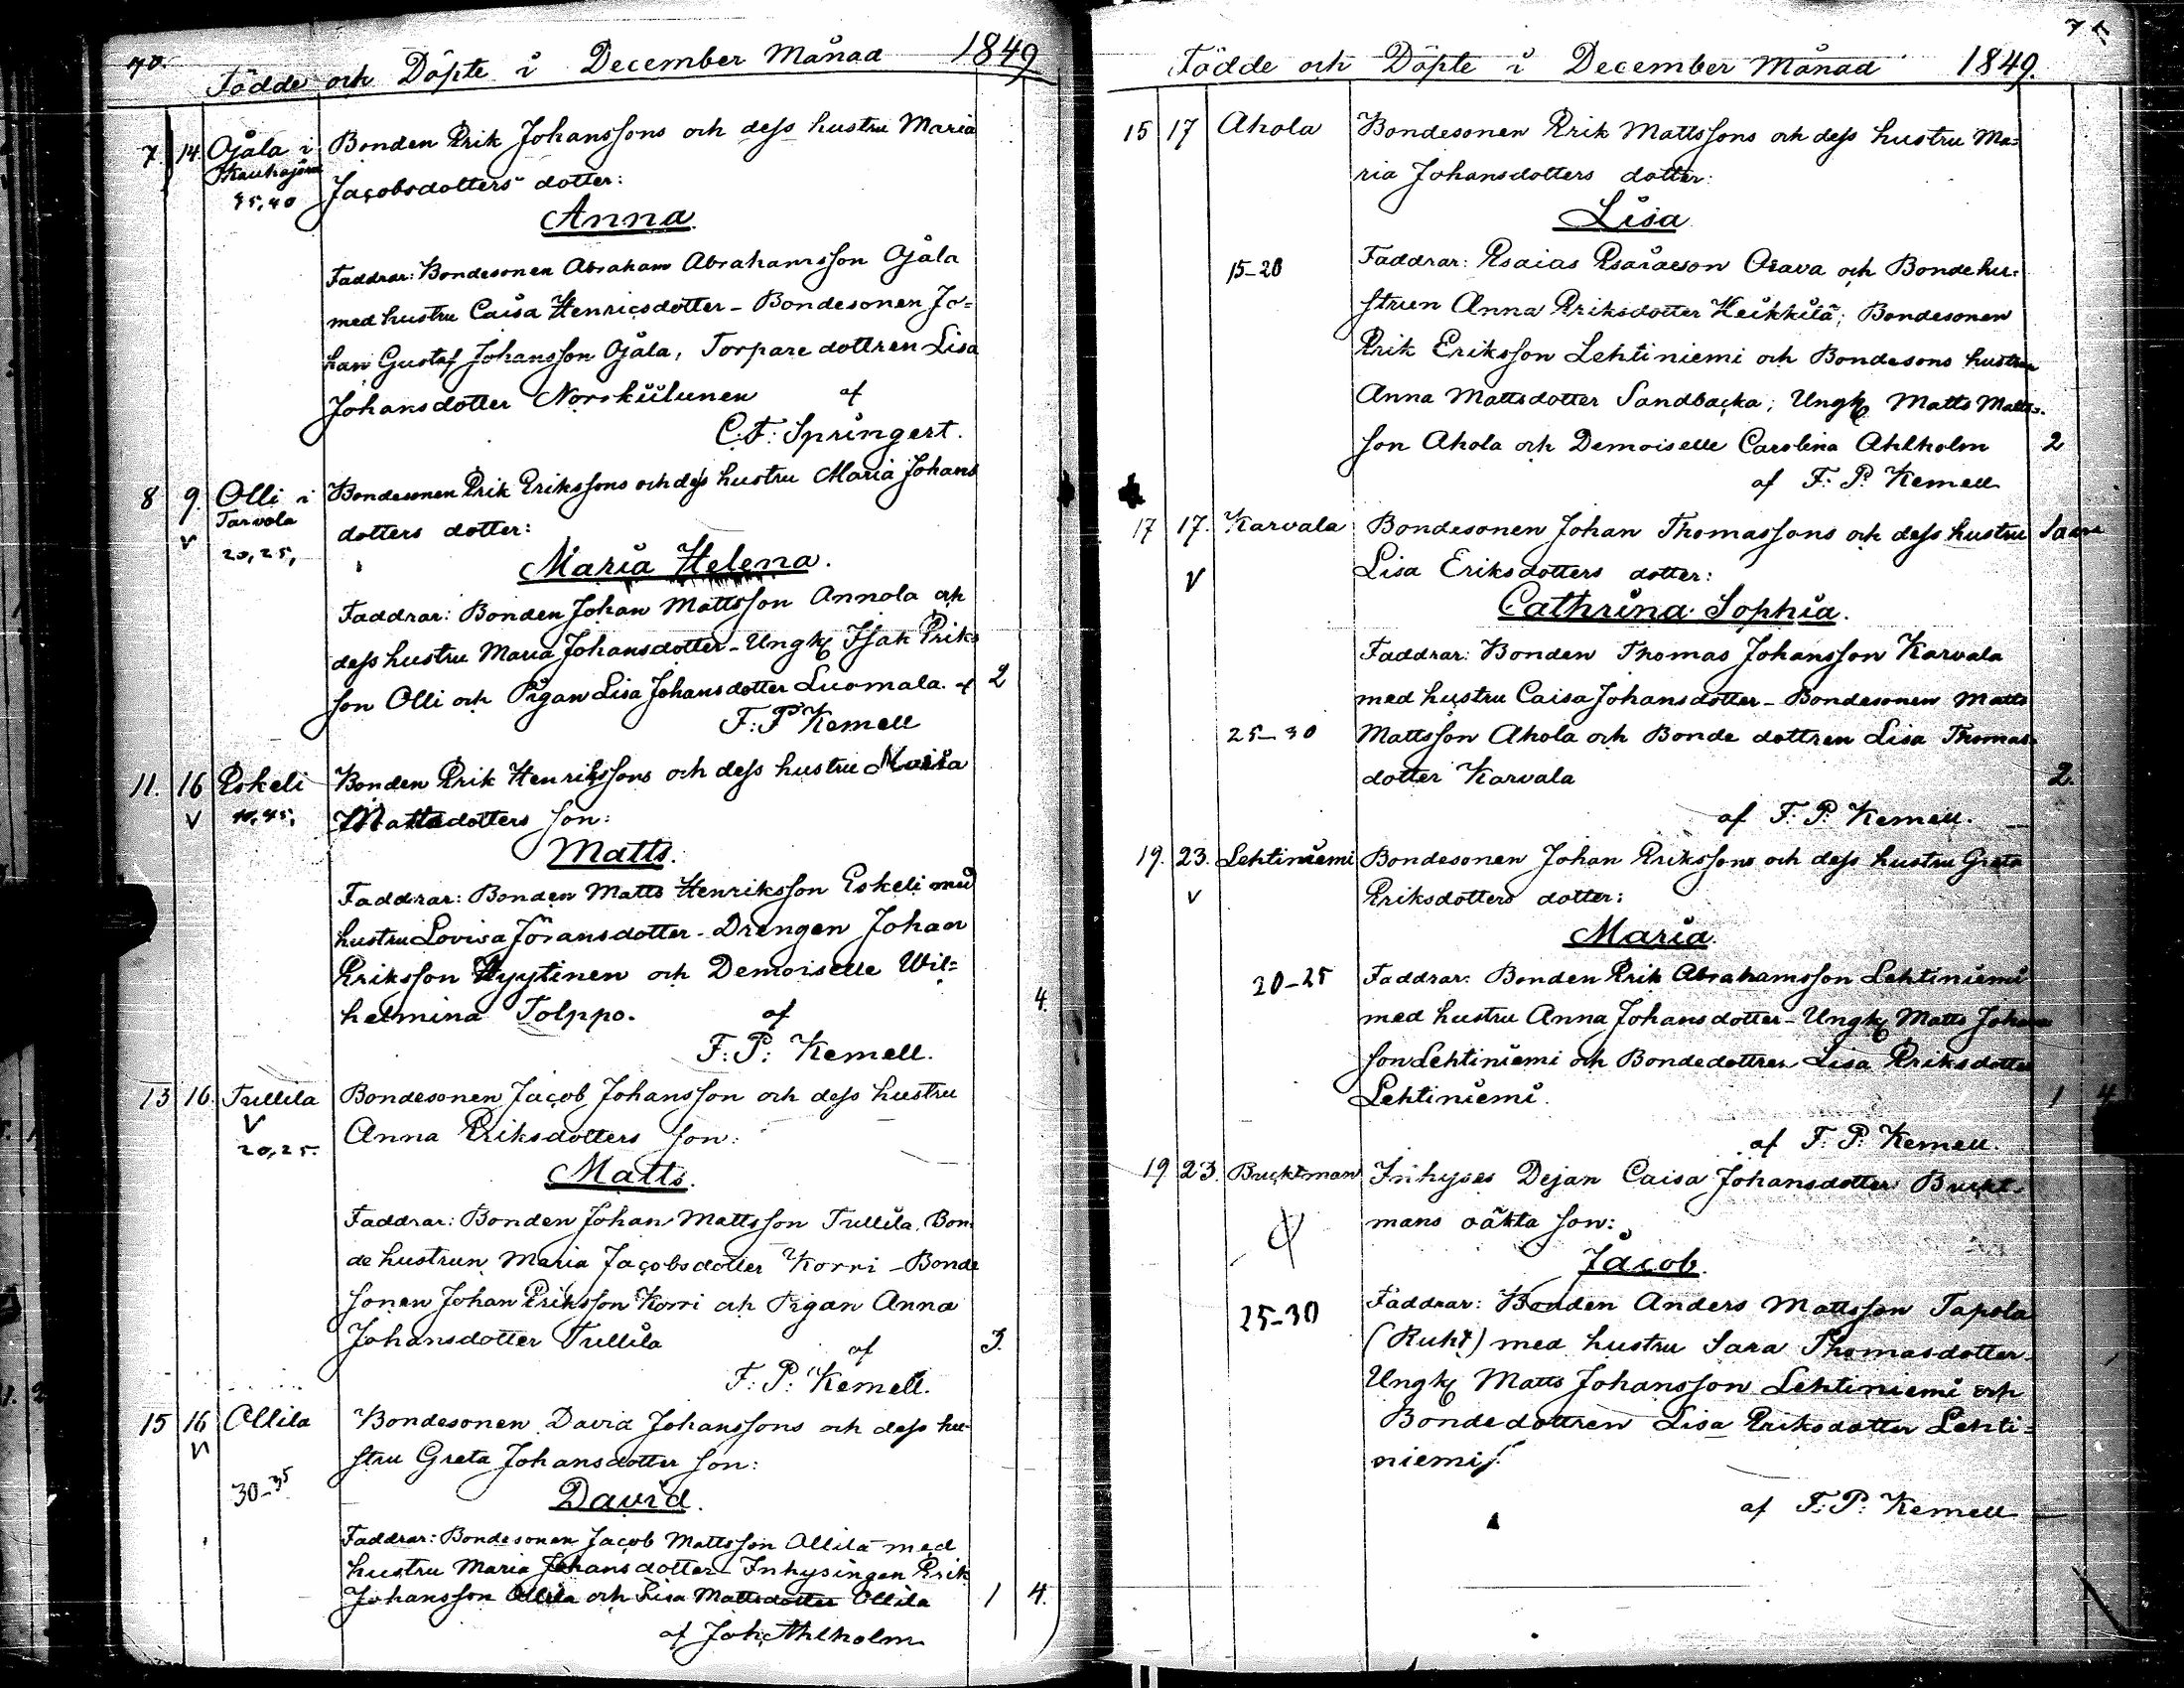 70.
Födde och Döpte i December Månad 1849
7. 14. Ojala i Bonden Erik Johanssons och dess hustru Maria
Kauhajärvi
35,40 Jacobsdotters dotter:
Anna
Faddrar: Bondesonen Abraham Abrahamsson Ojala
med hustru Caisa Henricsdotter - Bondesonen Jo=
han Gustaf Johansson Ojala, Torpare dottren Lisa
Johansdotter Norskülunen af
C.F: Springert.
8 9. Olli i Bondesonen Erik Erikssons och dess hustru Maria Johans
Tarvola
v 20,25, dotters dotter:
Maria Helena.
Faddrar: Bonden Johan Mattsson Annola och
dess hustru Maria Johansdotter - Ungk Isak Eriks
son Olli och Pigan Lisa Johansdotter Luomala. af 2
F: P Kemell
11. 16 Eskeli Bonden Erik Henrikssons och dess hustru Maria
v 40,45, Mattsdotters son:
Matts.
Faddrar: Bonden Matts Henriksson Eskeli med
hustru Lovisa Johansdotter - Drengen Johan
Eriksson Hyytinen och Demoiselle Wil=
helmina Tolppo. af 4.
F: P: Kemell.
13 16. Tullila Bondesonen Jacob Johansson och dess hustru
v
20,25. Anna Eriksdotters son:
Matts.
Faddrar: Bonden Johan Mattsson Tullila, Bon
de hustrun Maria Jacobsdotter Korri - Bonde
sonen Johan Eriksson Korri och Pigan Anna
Johansdotter Tullila af 3.
F: P: Kemell.
15 16 Ollila Bondesonen David Johanssons och dess hu-
v
stru Greta Johansdotter son:
30-35 David.
Faddrar: Bondesonen Jacob Mattsson Ollila med
hustru Maria Johansdotter - Inhysingen Erik
Johansson Ollila och Lisa Mattsdotter Ollila 1 4.
af Joh. Ahlholm
71
Födde och Döpte i December Månad 1849.
15 17 Ahola Bondesonen Erik Mattssons och dess hustru Ma=
ria Johansdotters dotter:
Lisa
15-20 Faddrar: Esaias Esaiaeson Orava och Bondehu-
strun Anna Eriksdotter Heikkilä; Bondesonen
Erik Eriksson Lehtiniemi och Bondesons hustrun
Anna Mattsdotter Sandbacka; Ungk Matts Matts-
son Ahola och Demoiselle Carolina Ahlholm 2
af F: P: Kemell
17 17. Karvala Bondesonen Johan Thomassons och dess hustru
v Lisa Eriksdotters dotter:
Cathrina Sophia.
Faddrar: Bonden Thomas Johansson Karvala
med hustru Caisa Johansdotter - Bondesonen Matts
25-30 Mattsson Ahola och Bonde dottren Lisa Thomas
dotter Karvala 2.
af F. P. Kemell.
19. 23. Lehtiniemi Bondesonen Johan Erikssons och dess hustru Greta
v Eriksdotters dotter:
Maria.
20-25 Faddrar: Bonden Erik Abrahamsson Lehtiniemi
med hustru Anna Johansdotter - Ungk Matts Johans
son Lehtiniemi och Bondedottren Lisa Eriksdotter
Lehtiniemi. 1 4
af F. P. Kemell.
19 23. Bucktman Inhyses Dejan Caisa Johansdotter Buckt-
mans oäkta son:
Jacob.
25-30 Faddrar: Bonden Anders Mattsson Tapola
(Ruht) med hustru Sara Thomasdotter
Ungk Matts Johansson Lehtiniemi och
Bondedottren Lisa Eriksdotter Lehti=
niemi.
af F: P: Kemell